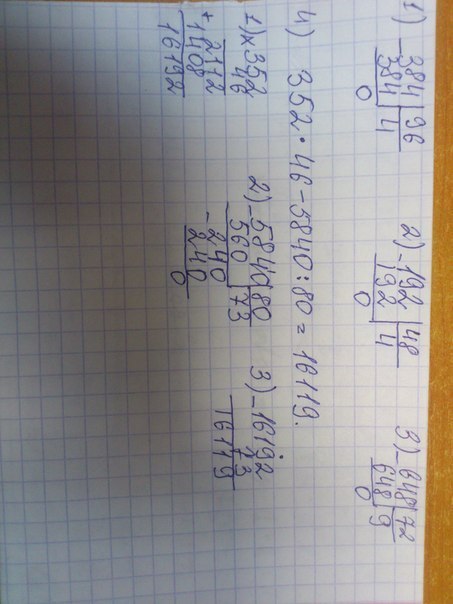 1) -384 | 96
384 | 4
0
2) -192 | 48
192 | 4
0
3) -648 | 72
648 | 9
0
4) 352 · 46 - 5840 : 80 = 16119.
1) × 352
46
2112
+ 1408
16192
2) -5840 | 80
560 | 73
-240
240
0
3) -16192
73
16119